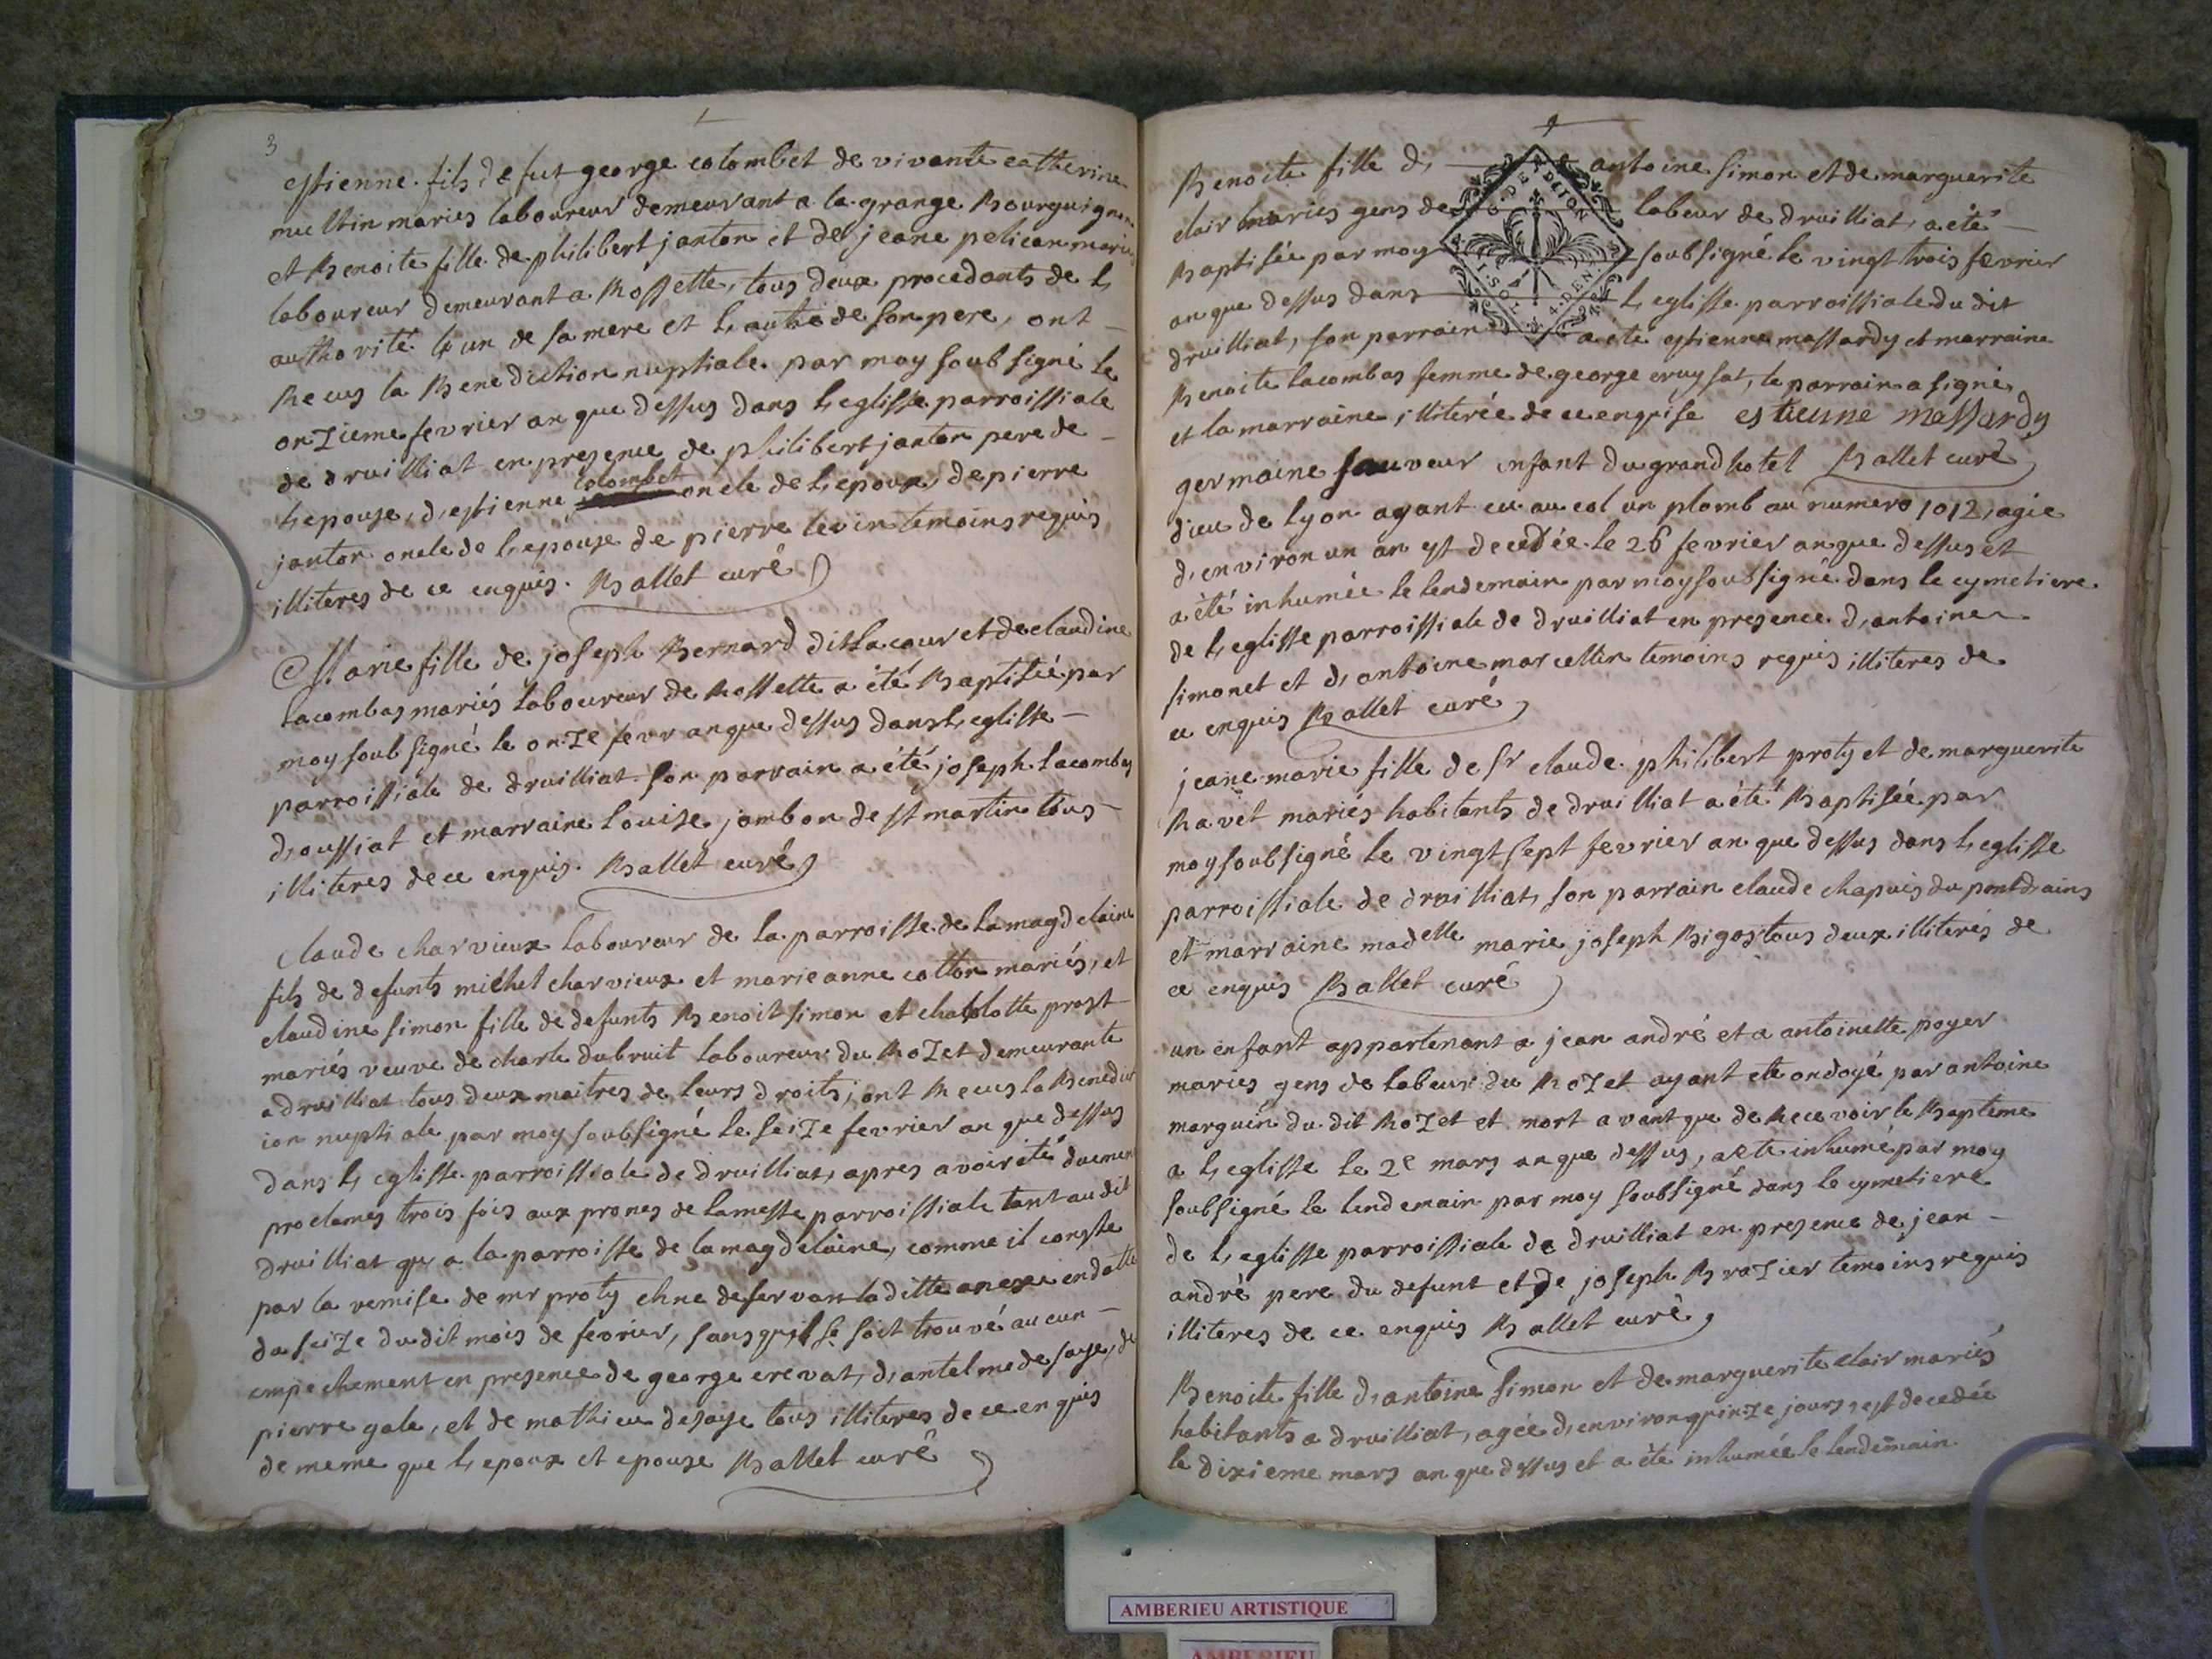 3
estienne fils de fut george colombet de vivante catherine
multin mariés laboureur demeurant a la grange Bourguignon
et Benoite fille de philibert janton et de jeane pelican mariés
laboureur demeurant a Rossette, tous deux procedants de l,
authorité l, un de sa mere et l, autre de son pere, ont
Receus la Benediction nuptiale par moy soubsigné le
onzieme fevrier an que dessus dans l, eglisse parroissiale
de druilliat en presence de philibert janton pere de
l, epouse, d, estienne colombet oncle de l, epoux, de pierre
janton oncle de l, epouse de pierre levin temoins requis
illiteres de ce enquis. Ballet curé
Marie fille de joseph Bernard dit Lacour et de claudine
Lacombas mariés Laboureur de Rossette a été Baptisée par
moy soubsigné le onze fevr an que dessus dans l, eglisse
parroissiale de druilliat son parrain a été joseph Lacombas
d, oussiat et marraine Louise jambon de st martin tous
illiteres de ce enquis. Ballet curé
Claude charvieux Laboureur de la parroisse de Lamagdelaine
fils de defunts michel charvieux et marieanne cotton mariés, et
claudine simon fille de defunts Benoit simon et charlotte prost
mariés veuve de charle dubruit Laboureur du Rozet demeurante
a druilliat tous deux maitres de leurs droits, ont Receus la Benedict
ion nuptiale par moy soubsigné le seize fevrier an que dessus
dans l, eglisse parroissiale de druilliat, apres avoir été duement
proclamés trois fois aux prones de la messe parroissiale tant au dit
druilliat qu, a la parroisse de lamagdelaine, comme il conste
par la remise de mr proty chne deservant la ditte anexe en datte
du seize du dit mois de fevrier, sans qu, il se soit trouvé aucun
empechement en presence de george crevat, d, antelme de saye, de
pierre gale, et de mathieu desaye tous illiteres de ce enquis
de meme que l, epoux et epouse Ballet curé
Benoite fille d, antoine simon et de marguerite
clair mariés gens de labeur de druilliat, a été
Baptisée par moy soubsigné le vingt trois fevrier
an que dessus dans l, eglisse parroissiale du dit
druilliat, son parrain a été estienne massardy et marraine
Benoite lacombas femme de george cruysat, le parrain a signé
et la marraine illiterée de ce enquise estienne massardy
germaine sauveur enfant du grand hotel Ballet curé
dieu de Lyon ayant eu au col un plomb au numero 1012, agée
d, environ un an est decedée le 26 fevrier an que dessus et
a été inhumée le lendemain par moy soubsigné dans le cymetiere
de l, eglisse parroissiale de druilliat en presence d, antoine
simonet et d, antoine marcellin temoins requis illiteres de
ce enquis Ballet curé
jeane marie fille de sr claude philibert proty et de marguerite
Ravet mariés habitants de druilliat a été Baptisée par
moy soubsigné le vingt sept fevrier an que dessus dans l, eglisse
parroissiale de druilliat, son parrain claude chapuis du pontdains
et marraine madelle marie joseph Bigos tous deux illiterés de
ce enquis Ballet curé
un enfant appartenant a jean andré et a antoinette poyer
mariés gens de labeur du Rozet ayant été ondoyé par antoine
marguin du dit Rozet et mort avant que de Recevoir le Bapteme
a l, eglisse le 2e mars an que dessus, a ete inhumé par moy
soubsigné le lendemain par moy soubsigné dans le cymetiere
de l, eglisse parroissiale de druilliat en presence de jean
andré pere du defunt et de joseph Brazier temoins requis
illiteres de ce enquis Ballet curé
Benoite fille d, antoine simon et de marguerite clair mariés
habitants a druilliat, agée d, environ quinze jours est decedée
le dixieme mars an que dessus et a été inhumée le lendemain
AMBERIEU ARTISTIQUE
AMBERIEU